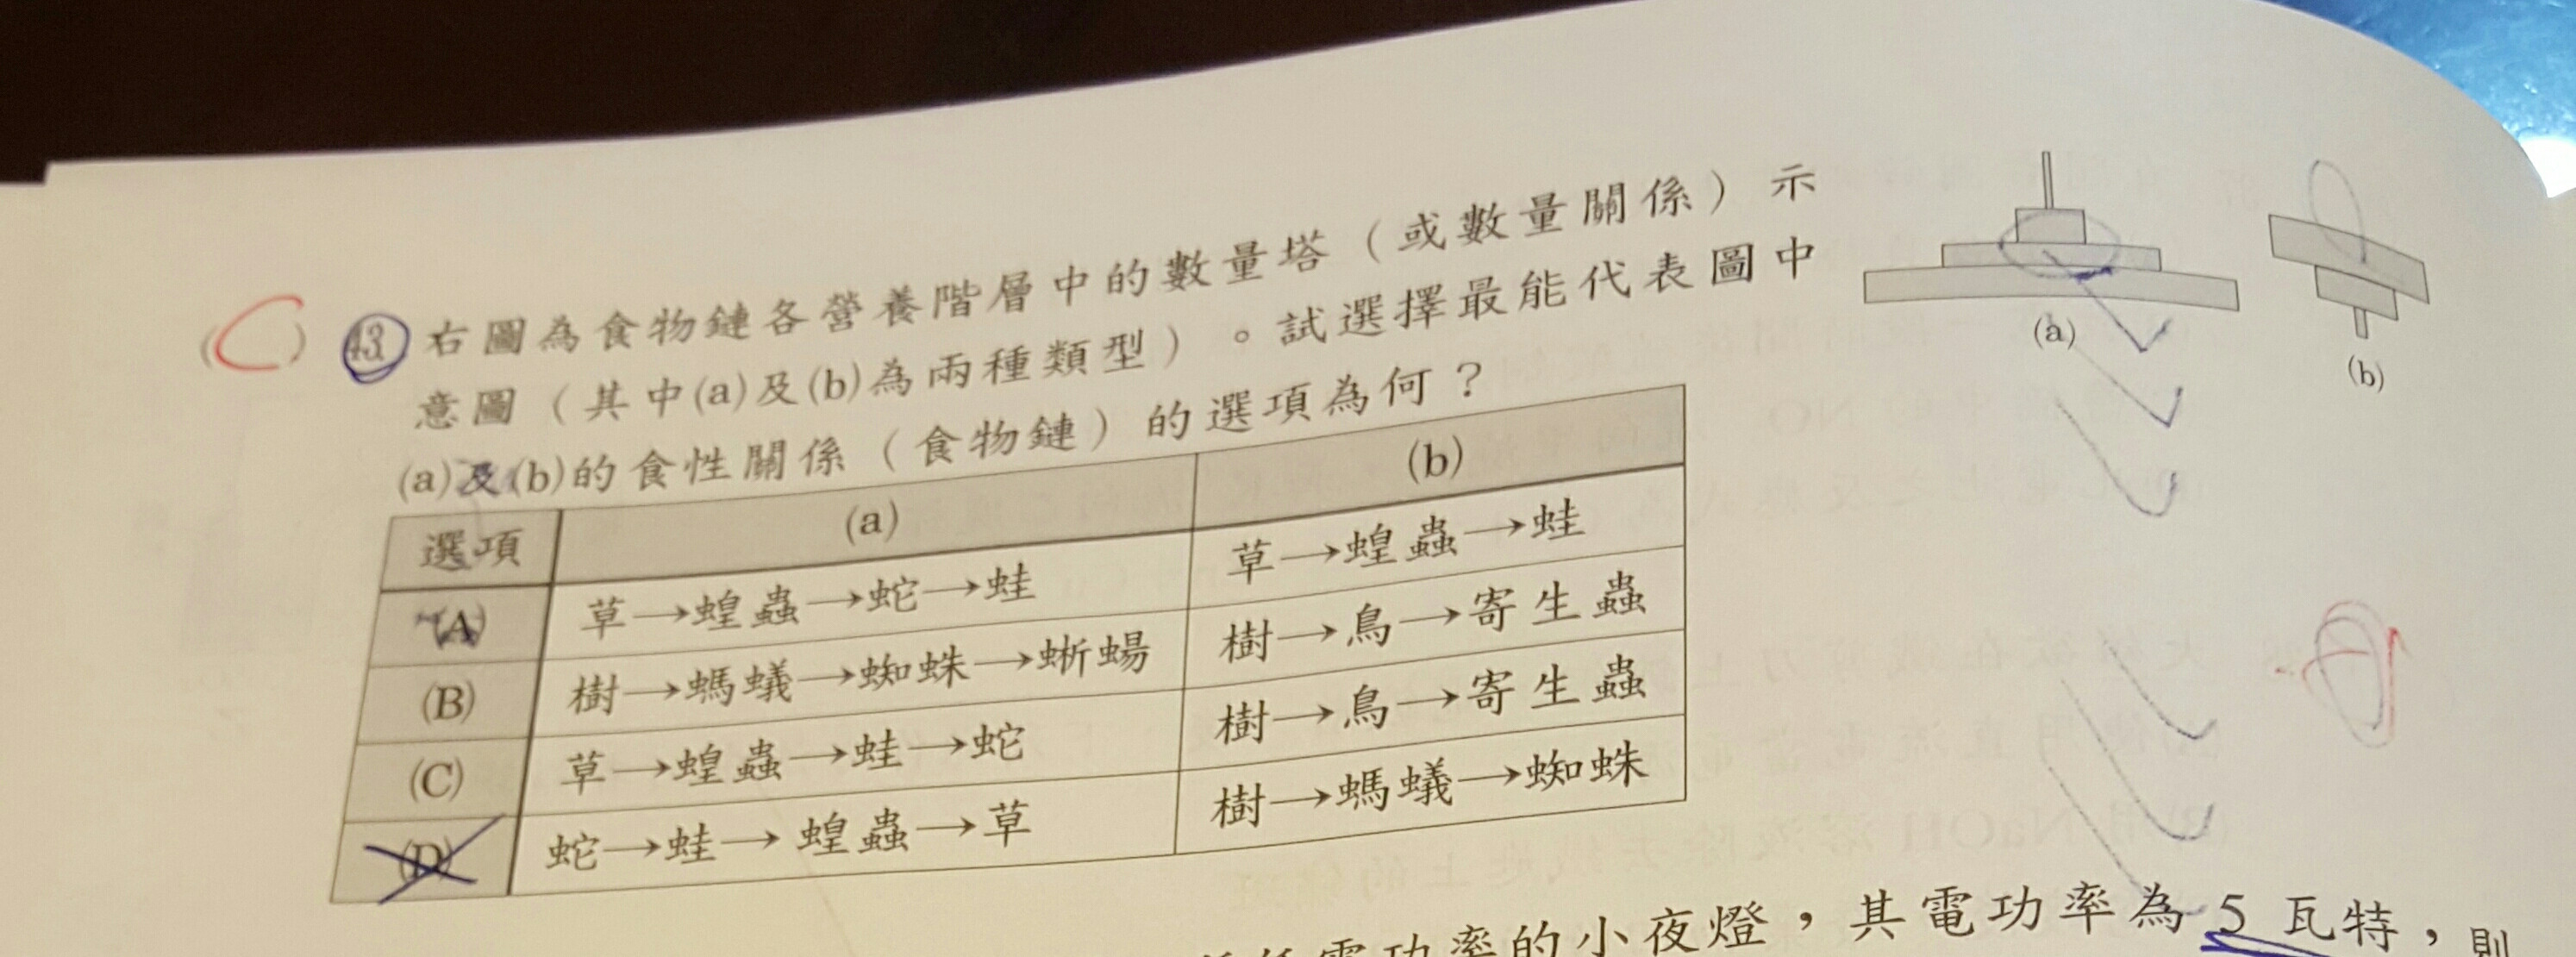 ( C ) 43. 右圖為食物鏈各營養階層中的數量塔（或數量關係）示
意圖（其中(a)及(b)為兩種類型）。試選擇最能代表圖中
(a)及(b)的食性關係（食物鏈）的選項為何？
(a)
(b)
選項 (a) (b)
(A) 草→蝗蟲→蛇→蛙 草→蝗蟲→蛙
(B) 樹→螞蟻→蜘蛛→蜥蜴 樹→鳥→寄生蟲
(C) 草→蝗蟲→蛙→蛇 樹→鳥→寄生蟲
(D) 蛇→蛙→蝗蟲→草 樹→螞蟻→蜘蛛
電功率的小夜燈，其電功率為 5 瓦特，則